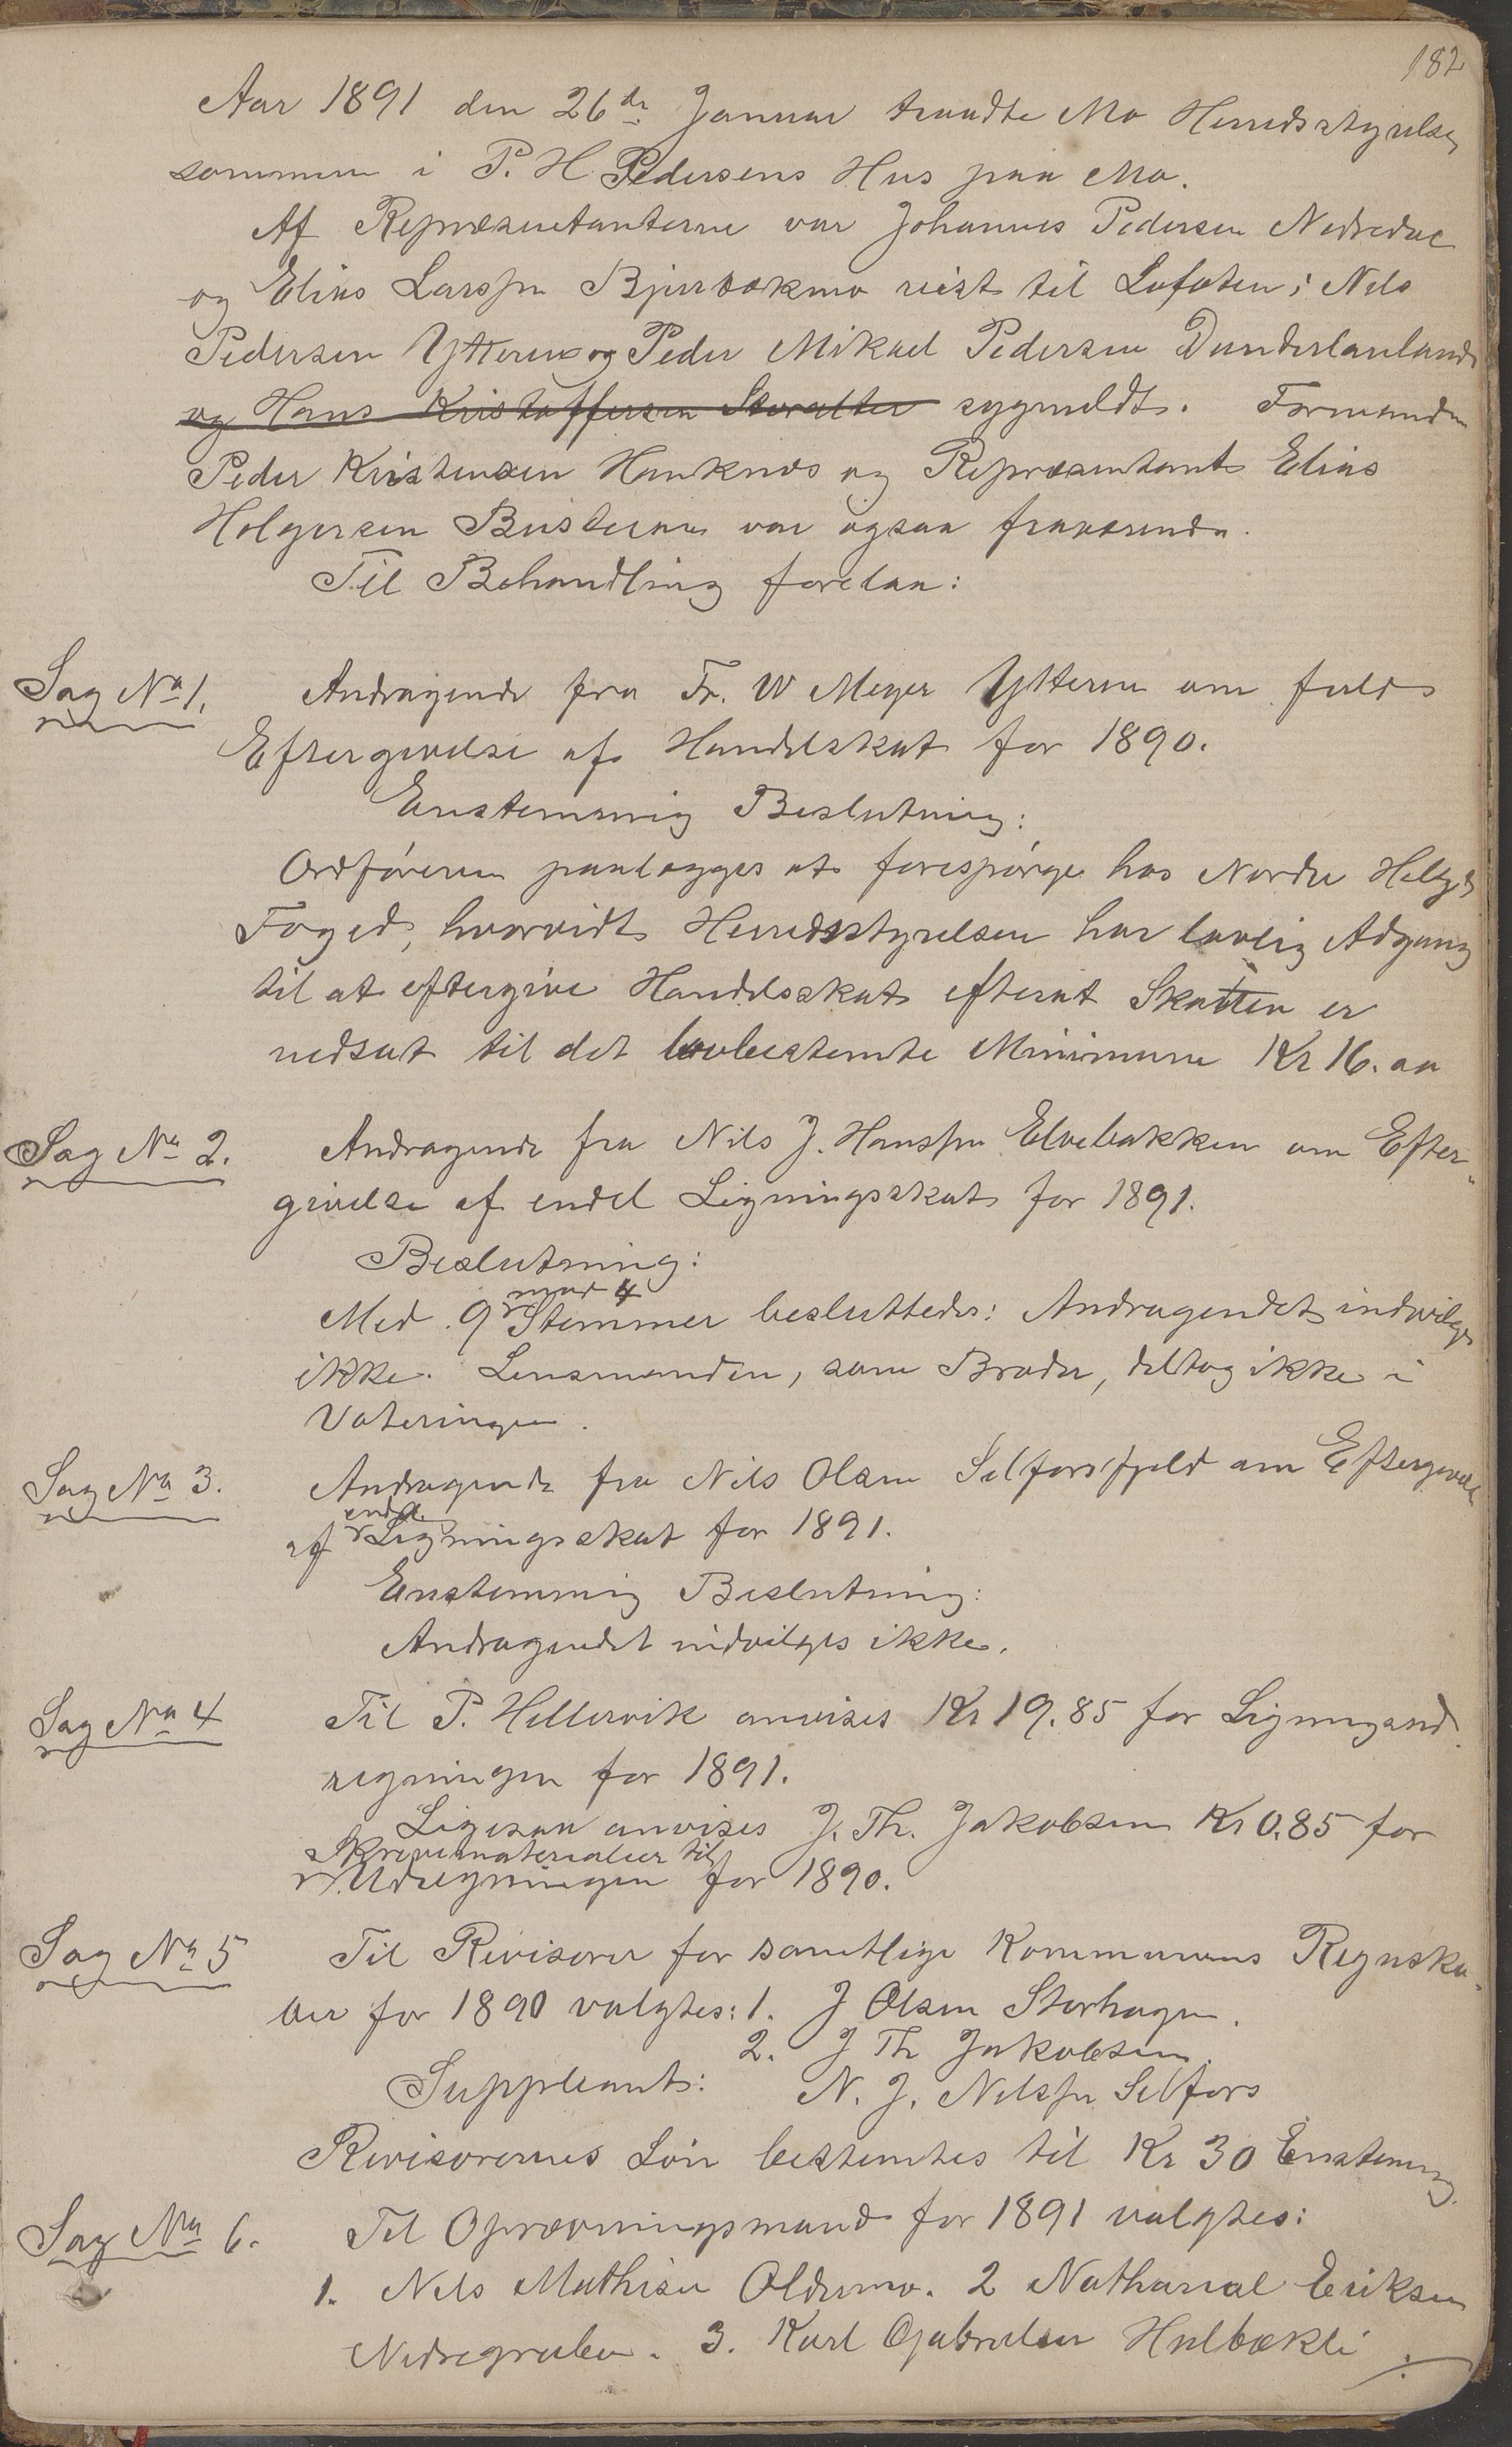 182
Aar 1891 den 26de Januar traadte Mo Herredsstyrelse
sammen i P. H. Pedersens Hus paa Mo.
Af Repræsentanterne var Johannes Pedersen Nedredal
og Elias Larssen Bjurbækmo reist til Lofoten; Nils
Pedersen Ytteren og Peder Mikael Pedersen Dunderlanland
og Hans Kristoffersen Storalter sygmeldt. Formanden
Peder Kristensen Hauknes og Repræsentant Elias
Holgersen Busteraa var ogsaa fraværende.
Til Behandling forelaa:
Sag No 1.
Andragende fra Fr. W Meyer Ytteren om fuld
Eftergivelse af Handelskat for 1890.
Enstemmig Beslutning:
Ordføreren paalægges at forespørge hos Nordre Helgds
Foged, hvorvidt Herredsstyrelsen har lovlig Adgang
til at eftergive Handelsskat efterat Skatten er
nedsat til det lovbestemte Minimum Kr 16. aa
Sag No 2.
Andragende fra Nils J. Hanssen Elvebakken om Efter-
givelse af endel Ligningsskat for 1891.
Beslutning:
mod 4
Med 9 Stemmer besluttedes: Andragendet indvilges
ikke. Lensmanden, som Broder, deltog ikke i
Voteringen.
Sag No 3.
Andragende fra Nils Olsen Selforsfjeld om Eftergivelse
endel
af Ligningsskat for 1891.
Enstemmig Beslutning:
Andragendet indvilges ikke.
Sag No 4
Til P. Hellervik anvises Kr 19.85 for Ligningsud-
regningen for 1891.
Ligesaa anvises J. Th. Jakobsen Kr 0.85 for
Skrivematerialier til
Udregningen for 1890.
Sag No 5
Til Revisorer for samtlige Kommunens Regnska-
ber for 1890 valgtes: 1. J Olsen Storhagen.
2. J Th Jakobsen.
Suppleant: N. J. Nilssen Selfors
Revisorernes Løn bestemtes til Kr 30 Enstemmig.
Sag No 6.
Til Oprævningsmænd for 1891 valgtes:
1. Nils Mathisen Oldermo. 2 Nathanael Eriksen
Nedregruben. 3. Karl Gabrielsen Hulbækli